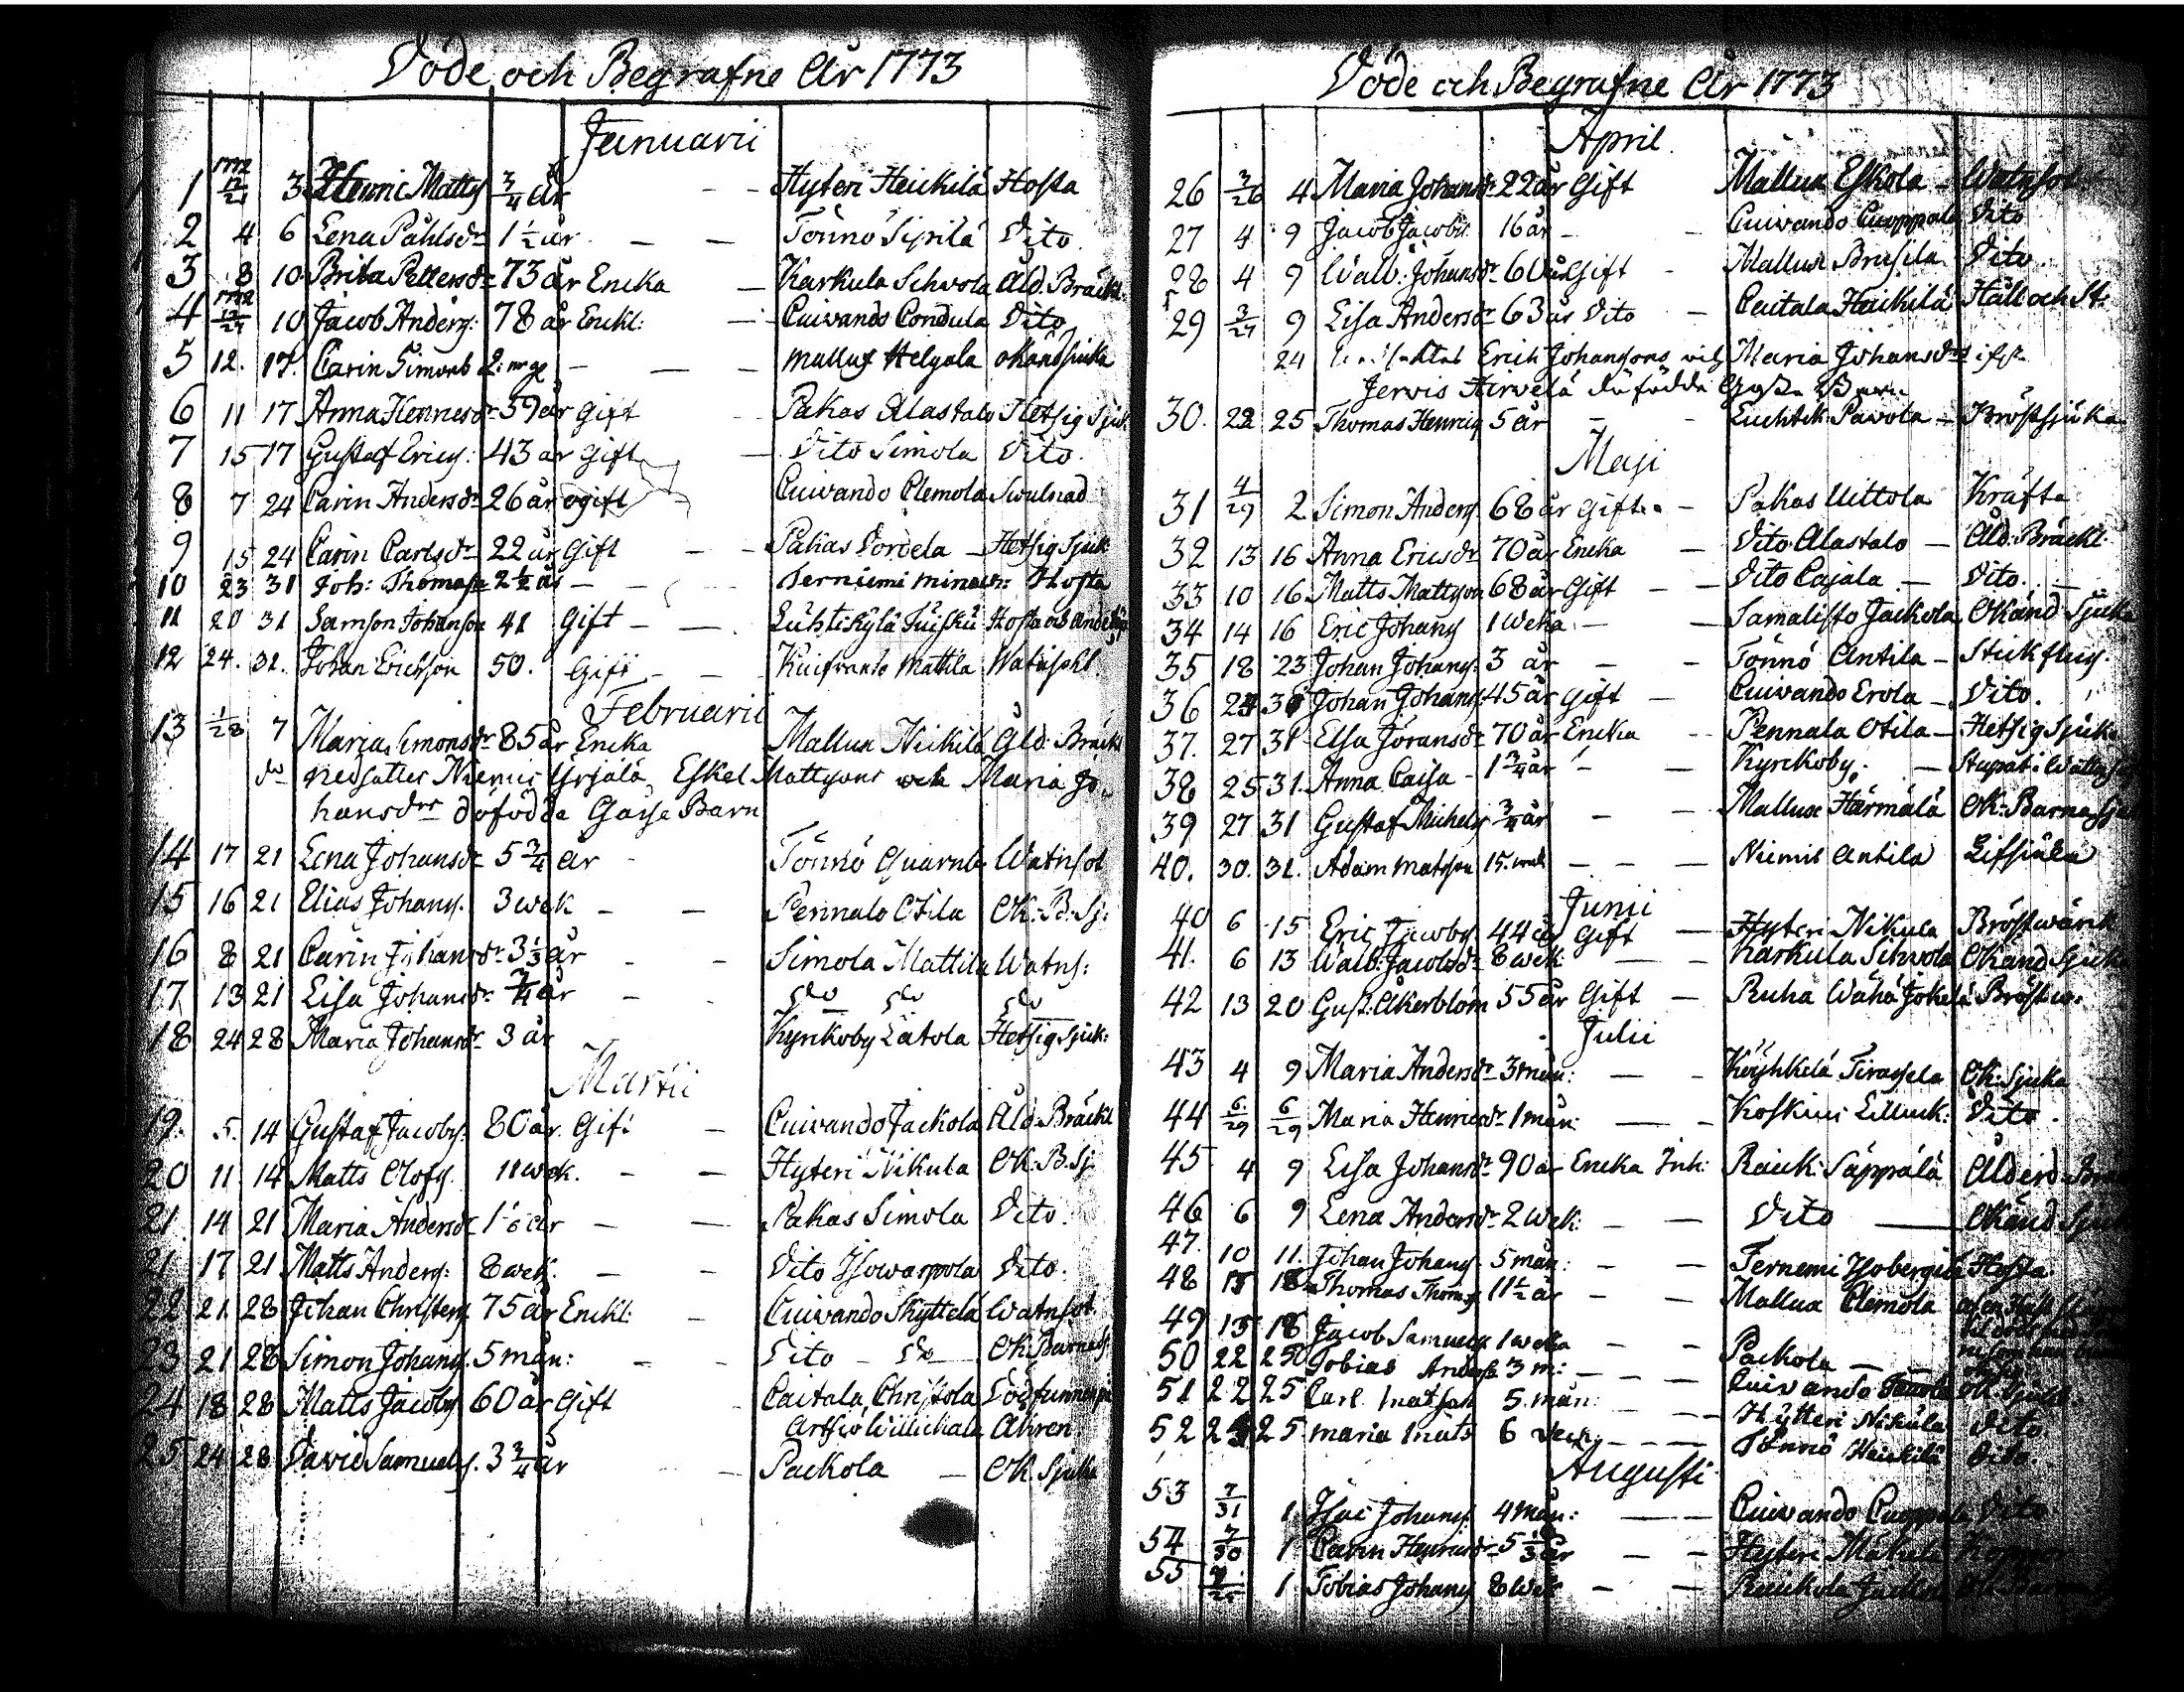 Döde och Begrafne År 1773
Januarii
1 1772 12/21 3 Henric Matts. 3/4 år - - Hyteri Heickilä Hosta
2 4 6 Lena Påhlsdr 1 1/2 år - - Tönnö Sipilä Dito
3 8 10 Brita Pettersdr 73 år Encka - Karkula Sihvola Åld. Bräckl.
4 1772 12/27 10 Jacob Anders: 78 år Enckl: - Cuivando Condula Dito
5 12. 17. Carin Simonsd 2: - - - Mallus Helgola okänd siuka
6 11 17 Anna Henricsdr 59 år Gift Pakas Alastalo Hetsig Sjuk.
7 15 17 Gustaf Erics: 43 år Gift - Dito Simola Dito.
8 7 24 Carin Andersdr 26 år ogift Cuivando Clemola Swulnad
9 15 24 Carin Carlsdr 22 år Gift - - Pakas Dordela - Hetsig Sjuk
10 23 31 Joh: Thomass 2 1/2 år - - Terniemi Hosta
11 20 31 Samson Johanson 41 Gift - - Luhtikylä Hosta
12 24. 31. Johan Erichson 50. Gift - - Kuifvando Mattila Watusoht
Februarii
13 1/28 7 Maria Simonsdr 85 år Encka Mallux Nickilä Åld. Bräckl
do nedsattes Niemis Yrjälä Eskel Mattsons och Maria Jo-
hansdrs döfödda Gosse Barn
14 17 21 Lena Johansdr 5 3/4 år - Tönnö Qvarnb Watnsot
15 16 21 Elias Johans. 3 wek - - Pennalo Otila OK: B: Sj:
16 8 21 Carin Johansdr 3 1/3 år - - Simola Mattila Watns:
17 13 21 Lisa Johansdr 3/4 år - - do do do
18 24 28 Maria Johansdr 3 år Kyrkoby Latola Hetsig Sjuk:
Martii
19. 5. 14 Gustaf Jacobs. 80 år Gift - Cuivando Jackola Åld. Bräckl
20 11 14 Matts Olofs. 11 wek. - - Hyteri Nikula OK: B. Sj.
21 14 21 Maria Andersdr 1 1/6 år - - Pakas Simola Dito.
21 17 21 Matts Anders: 8 wek. - - Dito Isowarpola Dito.
22 21 28 Johan Christers. 75 år Enckl: - Cuivando Skyttelä Watnsot
23 21 28 Simon Johans. 5 mån: - - Dito - do OK: Barnasj.
24 18 28 Matts Jacobs 60 år Gift Caitala Christola Död funnen på
Artsiö Willichala Åkren
25 24 28 David Samuels. 3 3/4 år - Packola - OK. Sjuka
Döde och Begrafne År 1773
April.
26 3/26 4 Maria Johansdr 22 år Gift Mallux Eskola - Watnsot
27 4 9 Jacob Jacobs 16 år - - Cuivando Cuoppala Dito
28 4 9 Walb: Johansdr 60 år Gift - Mallux Brusila Dito
29 3/27 9 Lisa Andersdr 63 år Dito - Caitala Heickilä Håll och St:
24 Erich Johansons Maria Johansdrs
Jervis Hirvelä döfödda Gosse Barn
30. 22 25 Thomas Henrics 5 år - - Luhtik: Pavola - Bröstsjuka
Maji
31 4/29 2 Simon Anders. 68 år Gift. - Pakas Uittola Kräfta
32 13 16 Anna Ericsdr 70 år Encka - Dito Alastalo - Åld: Bräckl.
33 10 16 Matts Mattson 68 år Gift - - Dito Cajala - Dito.
34 14 16 Eric Johans 1 weka - - Samalisto Jackola Okänd Sjuka
35 18 23 Johan Johans: 3 år - - Tönnö Antila - Stickflug.
36 24 30 Johan Johans: 45 år Gift - Cuivando Erola - Dito.
37. 27 31 Elsa Göransdr 70 år Encka - Pennala Otila - Hetsig Sjuk.
38 25 31. Anna Caisa - 1 3/4 år - - Kyrckoby. -
39 27 31 Gustaf Michels 3/4 år - - Mallux Härmälä OK: Barnasju
40. 30. 31. Adam Matsson 15. - - - Niemis Antila Lifsiuka
Junii
40 6 15 Eric Jacobs. 44 år Gift - Hyteri Nikula Bröstwärk
41. 6 13 Walb: Jacobsdr 8 wek - - Karkula Sihvola Okänd Sjuka
42 13 20 Gust: Åkerblom 55 år Gift - Ruha Wähä Jokela Bröstw:
Julii
43 4 9 Maria Andersdr 3 mån: - - Köyhkelä OK: Sjuka
44 6/29 6/29 Maria Henricsdr 1 mån: - - Koskius Lilluk: Dito.
45 4 9 Lisa Johansdr 90 år Encka Inh: Rauk: Säppälä Ålderd.
46 6 9 Lena Andersdr 2 wek - - Dito - Okänd Sjuk
47. 10 11. Johan Johans. 5 mån: - - Ternemi Isobergilä Hosta
48 15 18 Thomas Thoms 11 1/2 år - - Mallux Clemola
49 15 18 Jacob Samuels 1 weka - - Packola - -
50 22 25 Tobias Anderss 3 m: - - - Cuivando
51 22 25 Carl Matsson 5. mån: - - Hytteri Nikula Dito.
52 24 25 Maria Mats 6 - - - Tönnö Heickilä Dito.
Augusti
53 7/31 1 Isac Johans. 4 mån: - - Cuivando Cuoppala Dito
54 7/30 1 Carin Henricsdr 5 1/3 år - - Hyteri Mäkelä Koppor
55 1 Tobias Johans 8 wek - - Rauckola